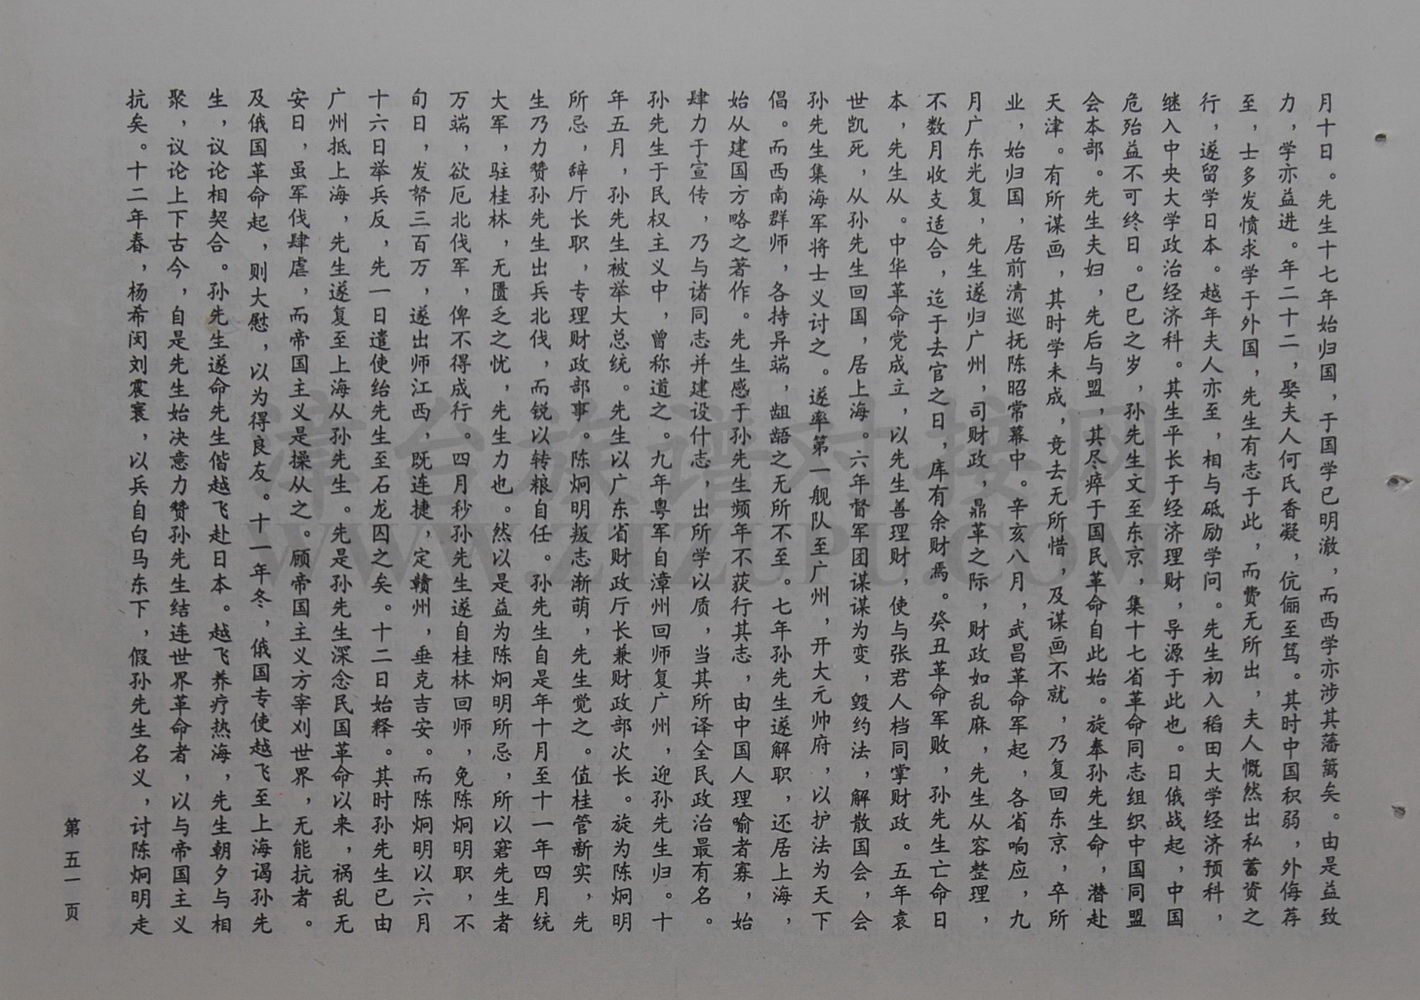 月十日。先生十七年始归国，于国学已明澈，而西学亦涉其藩篱矣。由是益致
力，学亦益进。年二十二，娶夫人何氏香凝，伉俪至笃。其时中国积弱，外侮荐
至，士多发愤求学于外国，先生有志于此，而费无所出，夫人慨然出私蓄资之
行，遂留学日本。越年夫人亦至，相与砥励学问。先生初入稻田大学经济预科，
继入中央大学政治经济科。其生平长于经济理财，导源于此也。日俄战起，中国
危殆益不可终日。已巳之岁，孙先生文至东京，集十七省革命同志组织中国同盟
会本部。先生夫妇，先后与盟，其尽瘁于国民革命自此始。旋奉孙先生命，潜赴
天津。有所谋画，其时学未成，竞去无所惜，及谋画不就，乃复回东京，卒所
业，始归国，居前清巡抚陈昭常幕中。辛亥八月，武昌革命军起，各省响应，九
月广东光复，先生遂归广州，司财政，鼎革之际，财政如乱麻，先生从容整理，
不数月收支适合，迄于去官之日，库有余财焉。癸丑革命军败，孙先生亡命日
本，先生从。中华革命党成立，以先生善理财，使与张君人档同掌财政。五年袁
世凯死，从孙先生回国，居上海。六年督军团谋谋为变，毁约法，解散国会，会
孙先生集海军将士义讨之。遂率第一舰队至广州，开大元帅府，以护法为天下
倡。而西南群师，各持异端，龃龉之无所不至。七年孙先生遂解职，还居上海，
始从建国方略之著作。先生感于孙先生频年不获行其志，由中国人理喻者寡，始
肆力于宣传，乃与诸同志并建设什志，出所学以质，当其所译全民政治最有名。
孙先生于民权主义中，曾称道之。九年粤军自漳州回师复广州，迎孙先生归。十
年五月，孙先生被举大总统。先生以广东省财政厅长兼财政部次长。旋为陈炯明
所忌，辞厅长职，专理财政部事。陈炯明叛志渐萌，先生觉之。值桂管新实，先
生乃力赞孙先生出兵北伐，而锐以转粮自任。孙先生自是年十月至十一年四月统
大军，驻桂林，无匮乏之忧，先生力也。然以是益为陈炯明所忌，所以窘先生者
万端，欲厄北伐军，俾不得成行。四月秒孙先生遂自桂林回师，免陈炯明职，不
旬日，发帑三百万，遂出师江西，既连捷，定赣州，垂克吉安。而陈炯明以六月
十六日举兵反，先一日遣使绐先生至石龙囚之矣。十二日始释。其时孙先生已由
广州抵上海，先生遂复至上海从孙先生。先是孙先生深念民国革命以来，祸乱无
安日，虽军伐肆虐，而帝国主义是操从之。顾帝国主义方宰刈世界，无能抗者。
及俄国革命起，则大慰，以为得良友。十一年冬，俄国专使越飞至上海谒孙先
生，议论相契合。孙先生遂命先生偕越飞赴日本。越飞养疗热海，先生朝夕与相
聚，议论上下古今，自是先生始决意力赞孙先生结连世界革命者，以与帝国主义
抗矣。十二年春，杨希闵刘震寰，以兵自白马东下，假孙先生名义，讨陈炯明走
第五一页
漳台族谱对接网
WWW.ZTZUPU.COM